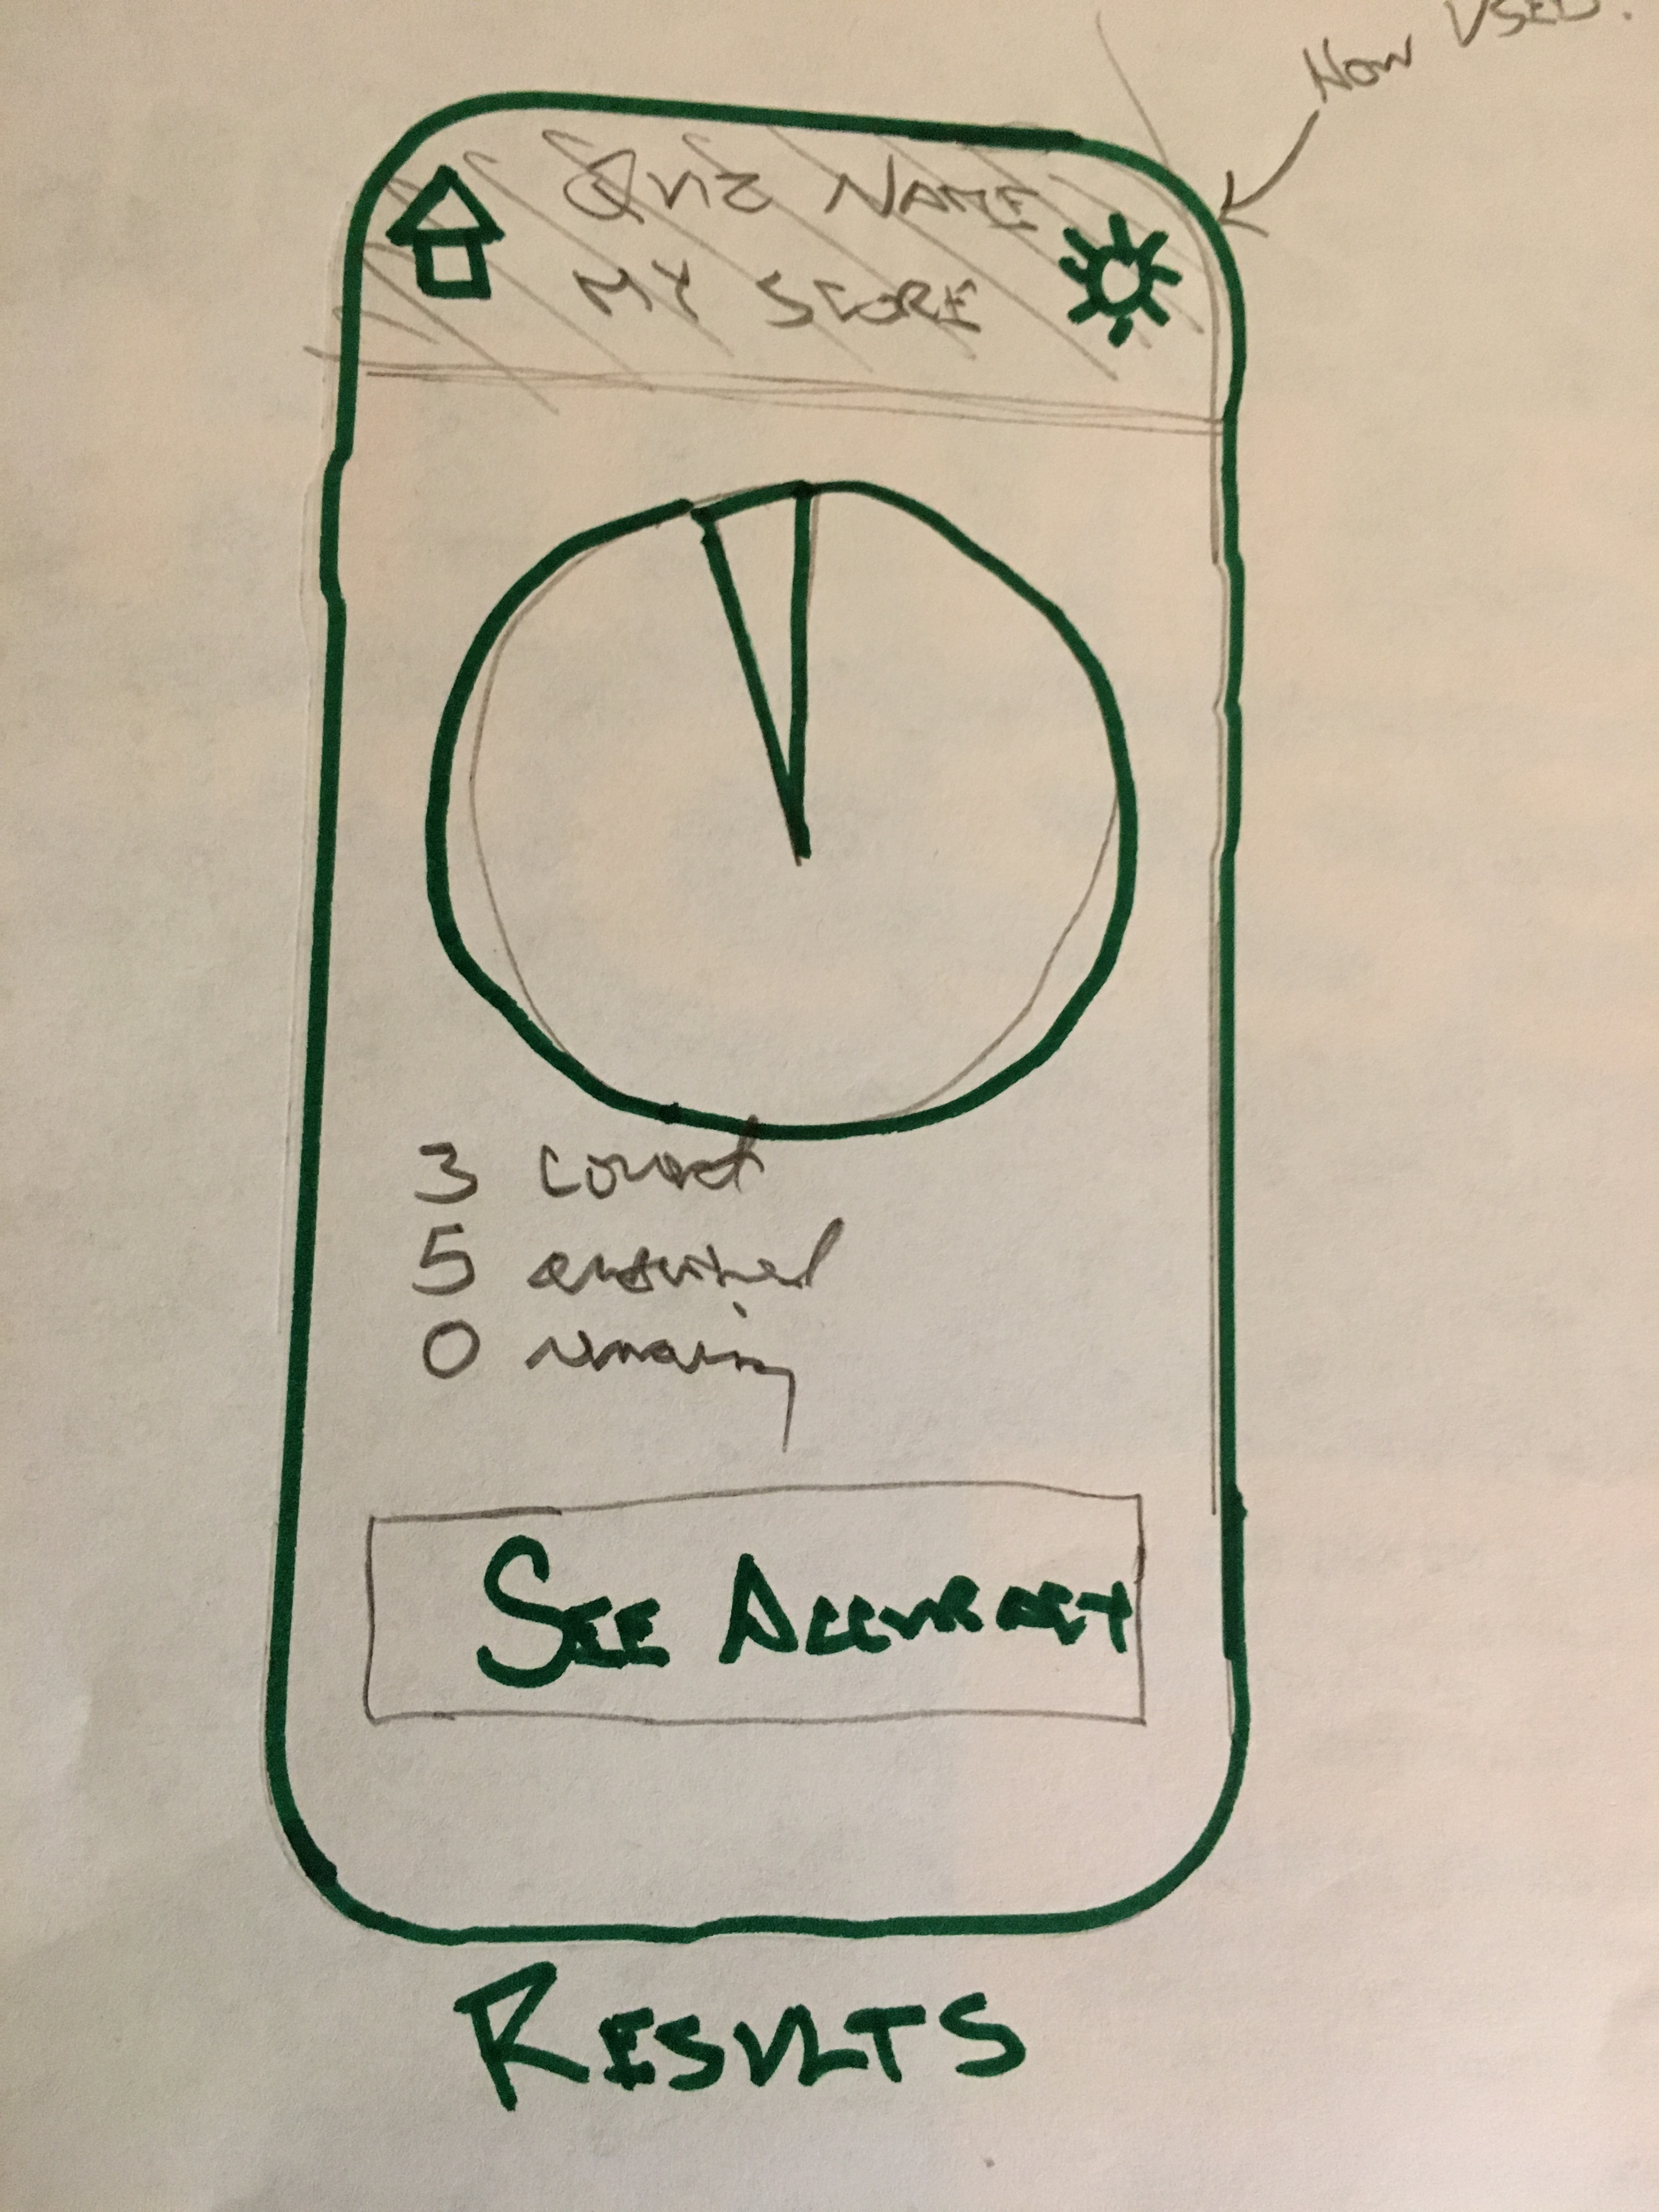 Now USED.
QUIZ NAME
MY SCORE
3 correct
5 answered
0 remaining
SEE ACCURACY
RESULTS